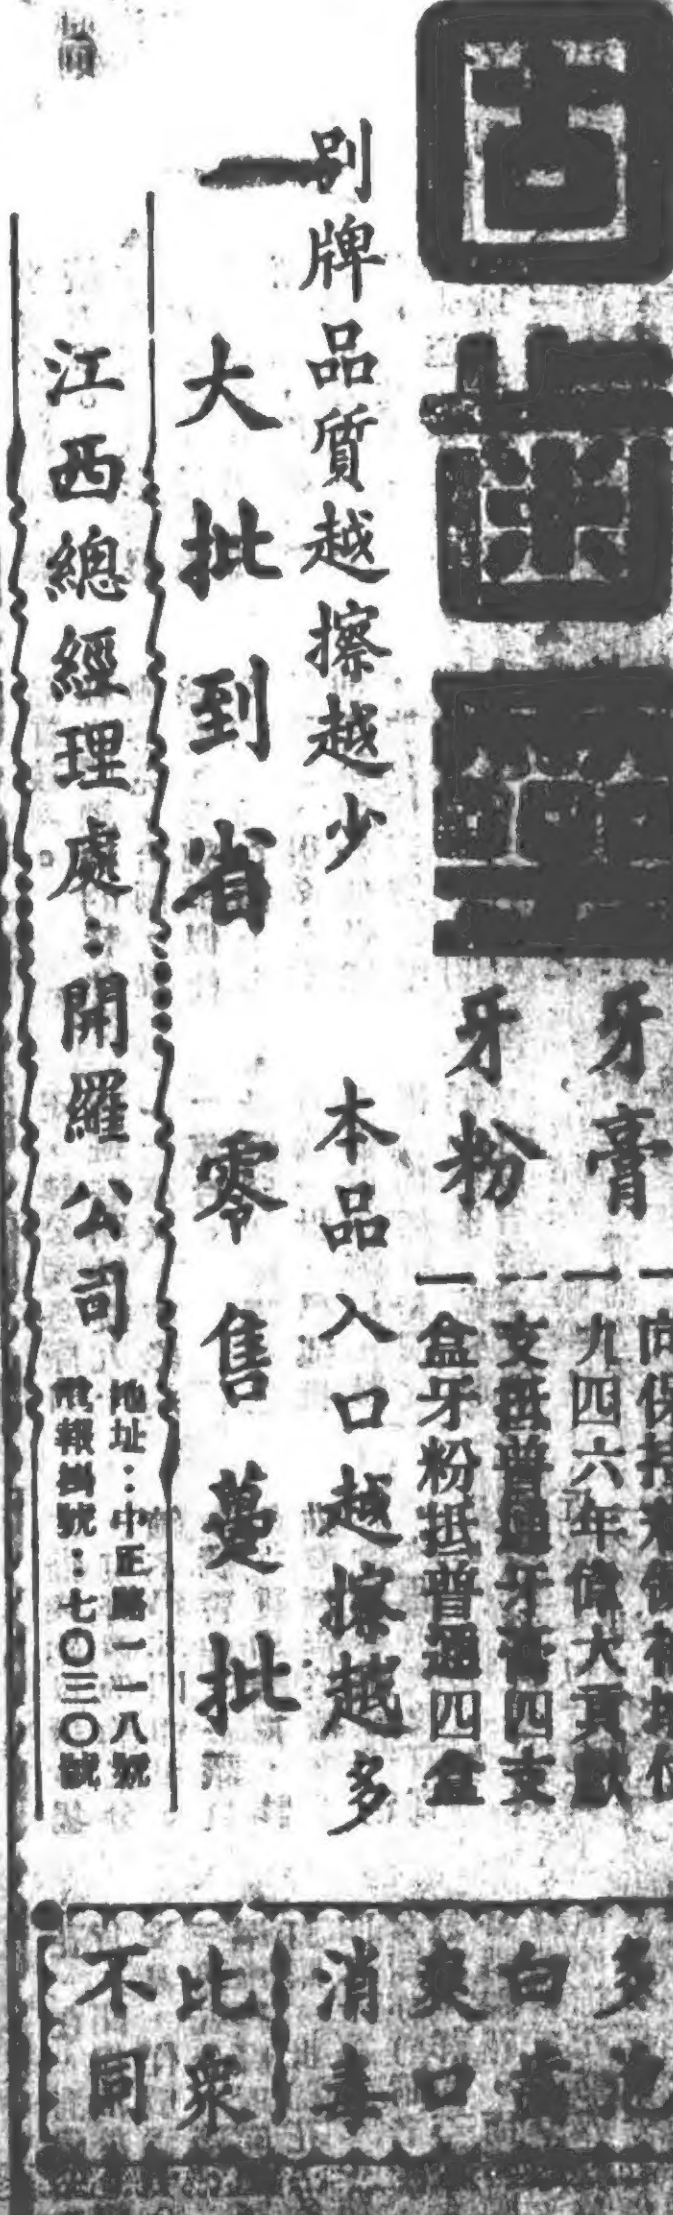 固齒靈
牙膏
牙粉
一向保持
一九四六年偉大貢獻
一支抵普通牙膏四支
一盒牙粉抵普通四盒
別牌品質越擦越少
本品入口越擦越多
一大批到省
零售躉批
江西總經理處：開羅公司
地址：中正路一一八號
電報掛號：七〇三〇號
多泡
白齒
爽口
消毒
比衆
不同